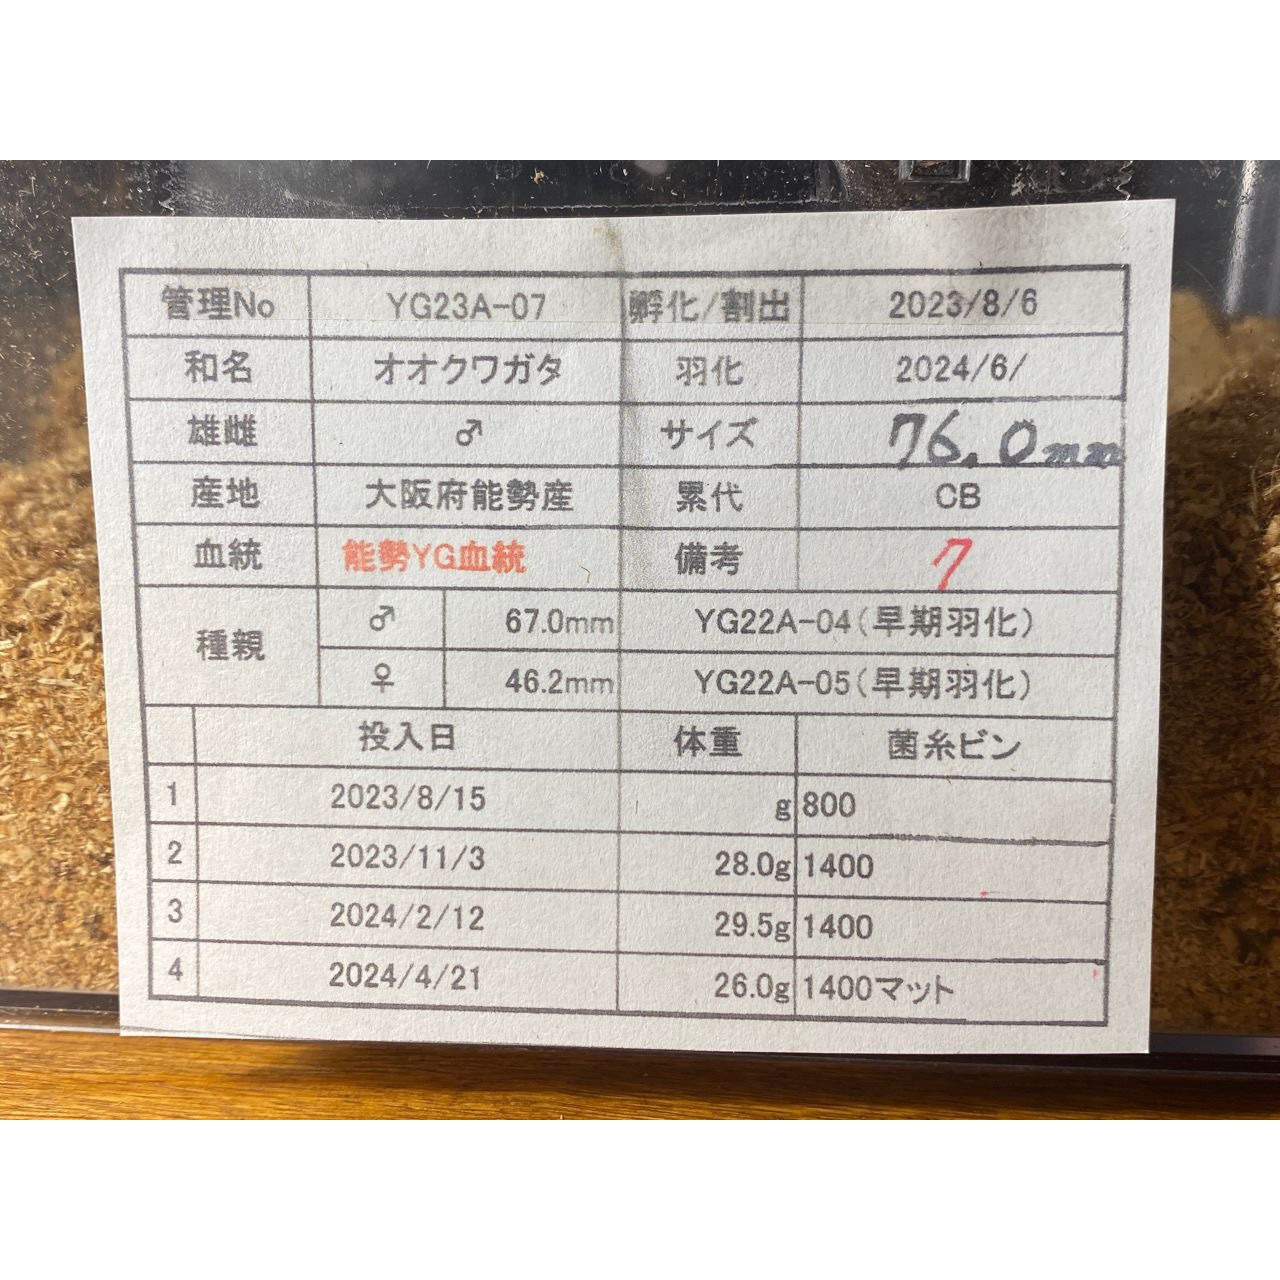 管理No YG23A-07 孵化/割出 2023/8/6
和名 オオクワガタ 羽化 2024/6/
雄雌 ♂ サイズ 76.0mm
産地 大阪府能勢産 累代 CB
血統 能勢YG血統 備考 7
種親 ♂ 67.0mm YG22A-04(早期羽化)
♀ 46.2mm YG22A-05(早期羽化)
投入日 体重 菌糸ビン
1 2023/8/15 g 800
2 2023/11/3 28.0g 1400
3 2024/2/12 29.5g 1400
4 2024/4/21 26.0g 1400マット